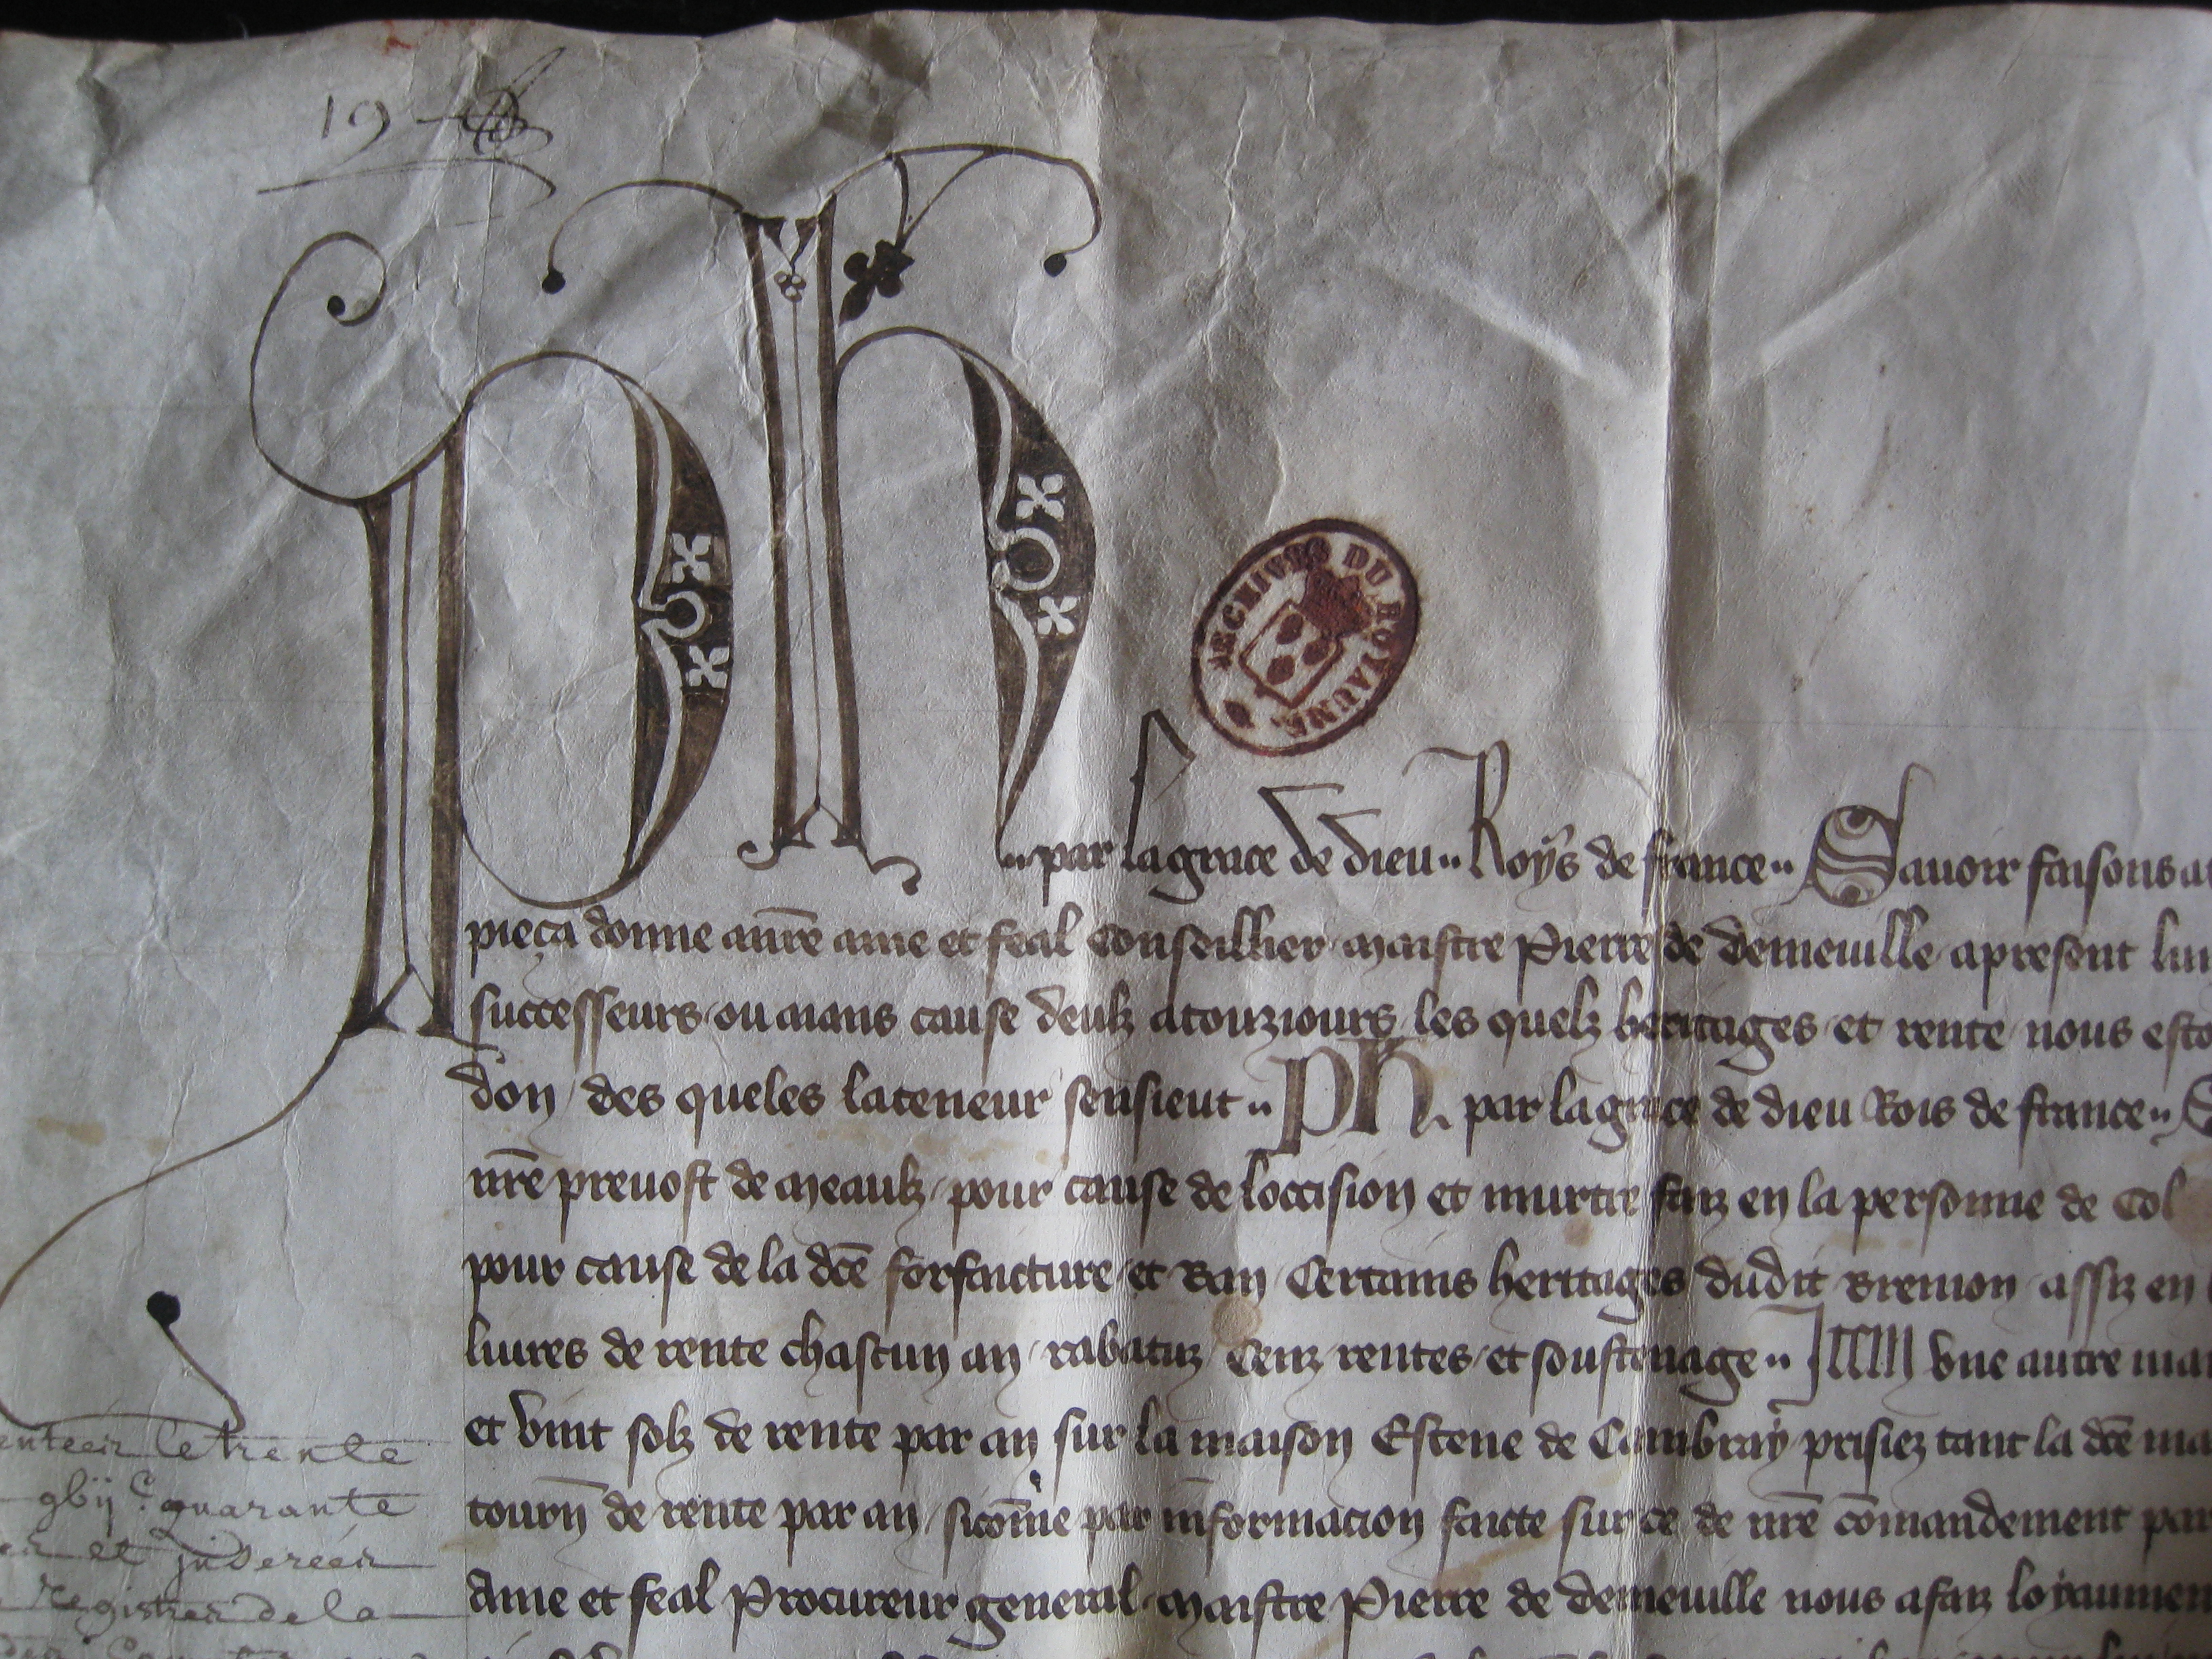 19
Ph
ARCHIVES DU ROYAUME
par la grace de dieu Roys de france Sauoir faisons a
pieça donne a nr̄e ame et feal Conseillier maistre Pierre de demeuille a present
successeurs ou aians cause deulz a touziours les quelz heritages et rente nous
don des queles la teneur sensieut Ph. par la grace de dieu Rois de france
nr̄e preuost de meaulz pour cause de loccision et murtre faiz en la personne de Col
pour cause de la dc̄e forfaicture et Ban Certains heritages dudit Bremon assiz en
liures de rente chascun an rabatuz Cenz rentes et soustenage Item vne autre
et vint solz de rente par an sur la maison Estene de Cambray prisiez tant la dc̄e
tourn̄ de rente par an sicom̄e par informacion faicte sur ce de nr̄e com̄andement par
Ame et feal Procureur general maistre Pierre de demeuille nous a faiz loyaumen
le trente
gbij c. quarante
et
Registres de la